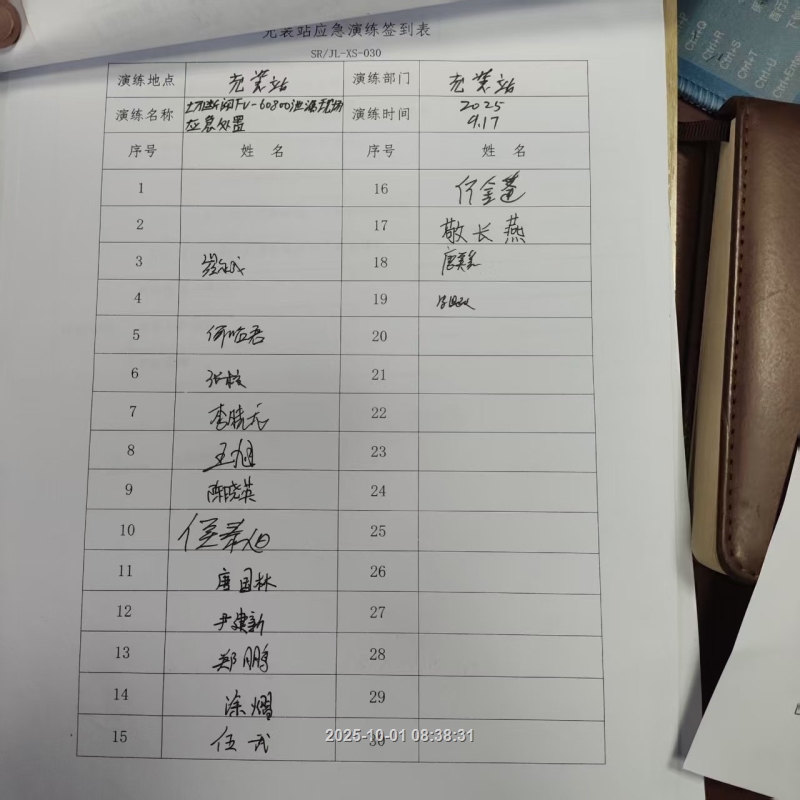 充装站应急演练签到表
SR/JL-XS-030
演练地点 充装站 演练部门 充装站
演练名称 切断阀FV-60800泄漏现场应急处置 演练时间 2025 9.17
序号 姓 名 序号 姓 名
1 16
2 17 敬长燕
3 18
4 19
5 何临君 20
6 21
7 李晓元 22
8 王旭 23
9 陈晓英 24
10 25
11 唐国林 26
12 尹建新 27
13 郑鹏 28
14 涂熠 29
15 伍武 30
2025-10-01 08:38:31
Ctrl+Q
Ctrl+R
Ctrl+S
Ctrl+T
Ctrl+U